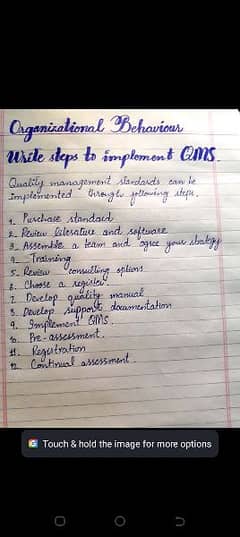 Organizational Behaviour
Write steps to implement QMS.
Quality management standards can be
Implemented through following steps.
1. Purchase standard
2. Review literature and software
3. Assemble a team and agree your strategy
4. Training
5. Review consulting options
6. Choose a register
7. Develop quality manual
8. Develop support documentation
9. Implement QMS.
10. Pre-assessment.
11. Registration
12. Continual assessment.
Touch & hold the image for more options